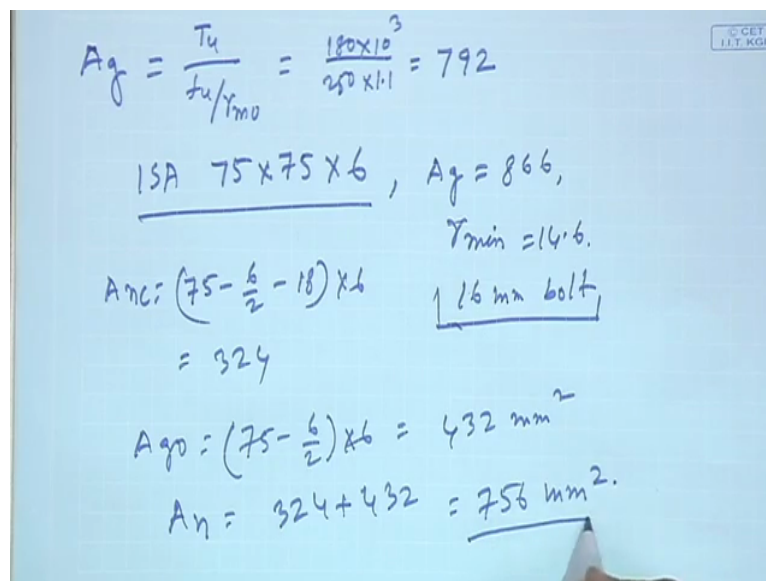 © CET
I.I.T. KGP
Ag = Tu / fu/γm0 = 180×10³ / 250×1.1 = 792
ISA 75×75×6, Ag = 866,
rmin = 14.6.
Anc = (75 - 6/2 - 18)×6
16 mm bolt,
= 324
Ago = (75 - 6/2)×6 = 432 mm²
An = 324+432 = 756 mm².